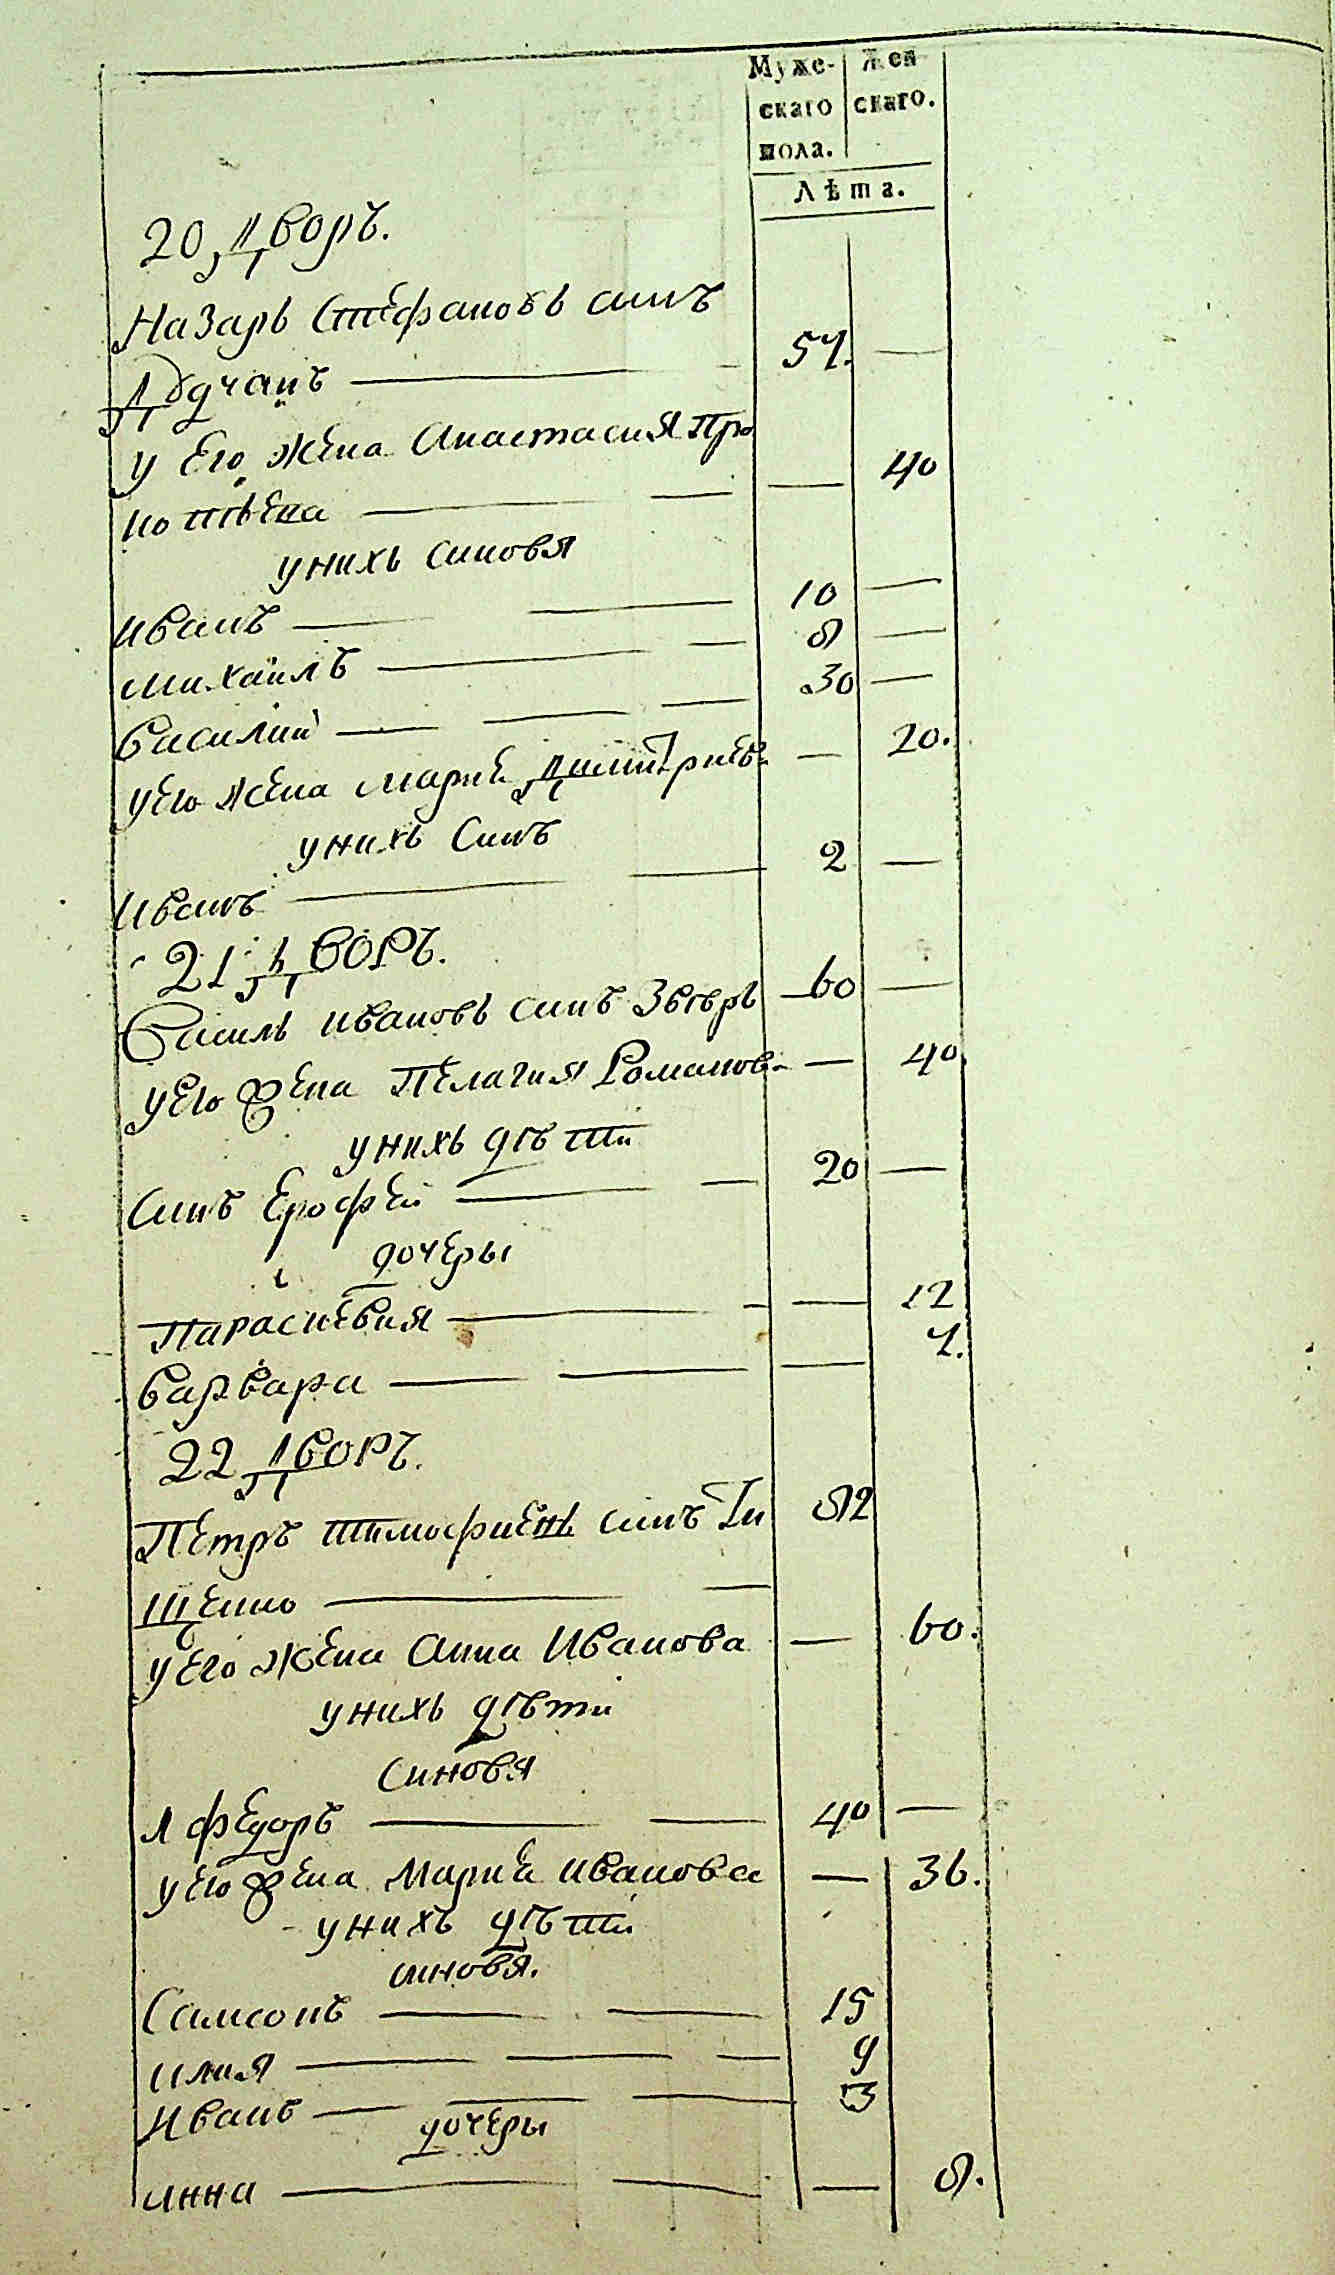 Муже-
скаго
пола.
Жен
скаго.
Лѣта.
20 Дворъ.
Назарь Стефановь синъ
57. —
у Его Жена Анастасия Про
коп Ева — 40
у нихь синовя
Иванъ 10 —
Михаилъ 8 —
Василий 30 —
у Его Жена Мария Димитриев — 20.
у нихь Синъ
Иванъ 2 —
21 Дворъ.
Василь Ивановь синъ Звѣрь 60 —
у Его жена Пелагия Романов — 40
у нихь дѣти
Синъ Ерофей 20 —
дочеры
Параскевия — 12
Варвара — 7.
22 Дворъ.
Петръ Тимофиевь синъ Ти
82
щенко
у Его Жена Анна Иванова — 60.
у нихь дѣти
Синовя
1 Федоръ 40 —
у Его жена Мария Иванова — 36.
у нихъ дѣти
синовя.
Самсонъ 15
Илия 9
Иванъ 3
дочеры
Анна — 8.